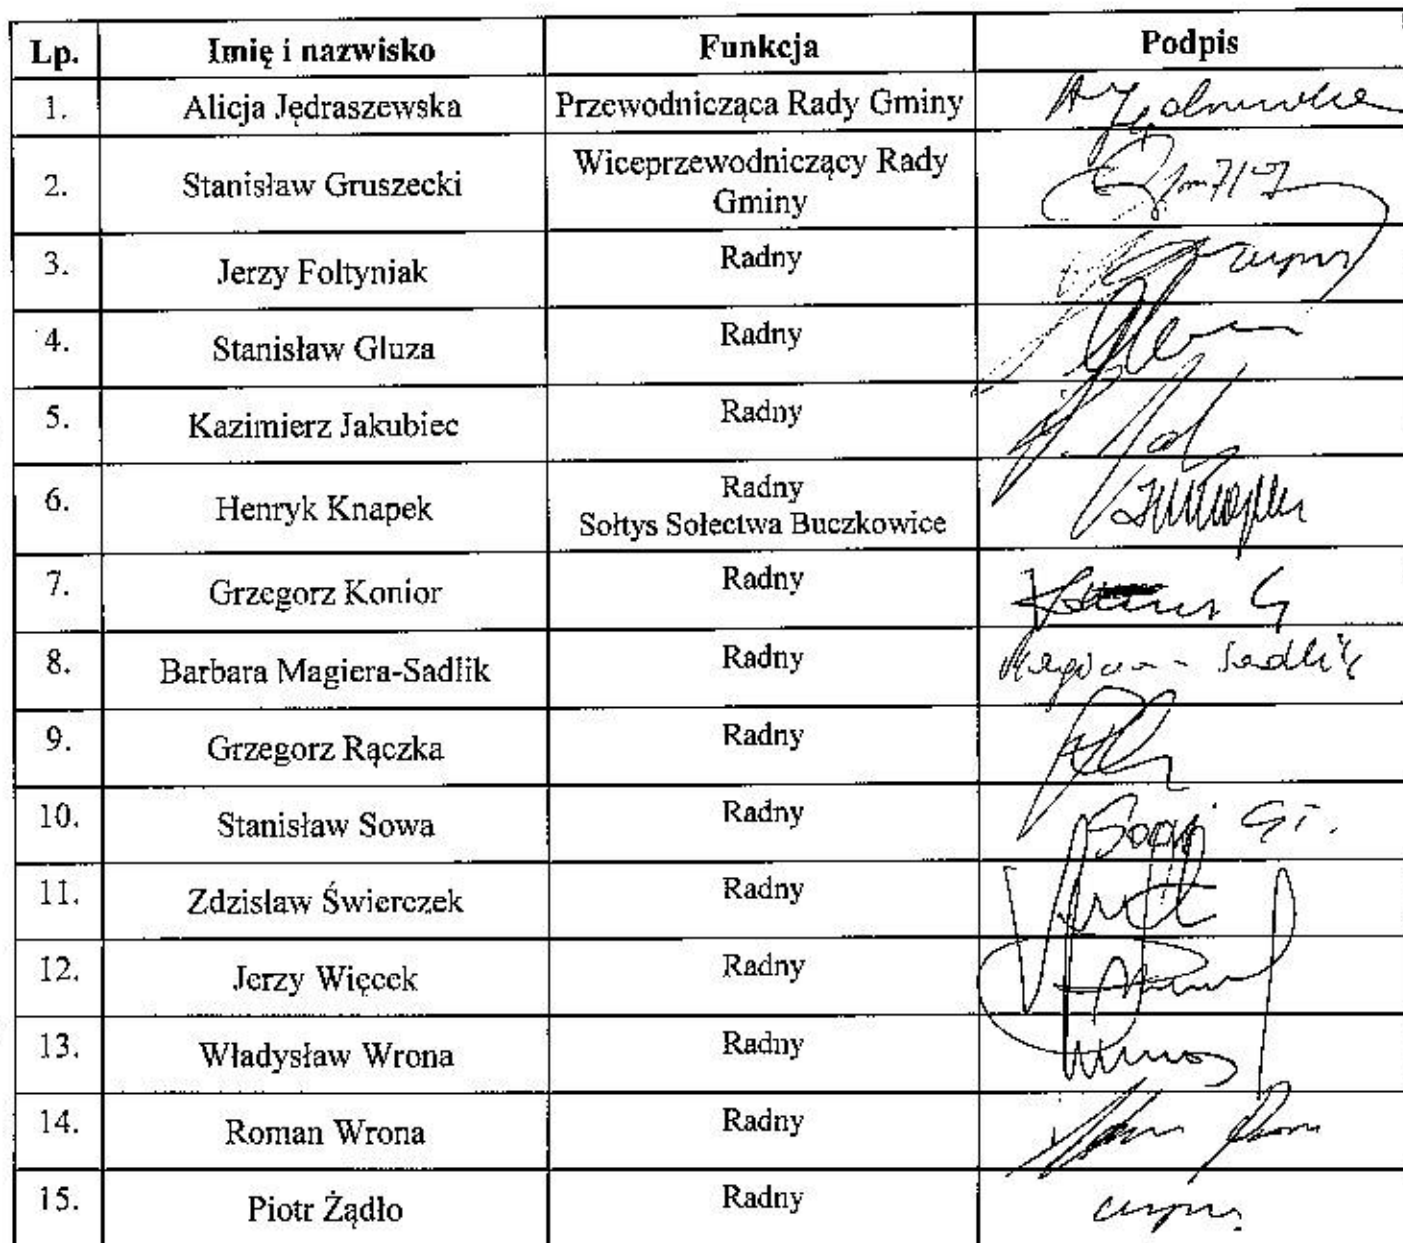 Lp. Imię i nazwisko Funkcja Podpis
1. Alicja Jędraszewska Przewodnicząca Rady Gminy
2. Stanisław Gruszecki Wiceprzewodniczący Rady
Gminy
3. Jerzy Foltyniak Radny
4. Stanisław Gluza Radny
5. Kazimierz Jakubiec Radny
6. Henryk Knapek Radny
Sołtys Sołectwa Buczkowice
7. Grzegorz Konior Radny
8. Barbara Magiera-Sadlik Radny Magiera-Sadlik
9. Grzegorz Rączka Radny
10. Stanisław Sowa Radny
11. Zdzisław Świerczek Radny
12. Jerzy Więcek Radny
13. Władysław Wrona Radny
14. Roman Wrona Radny
15. Piotr Żądło Radny